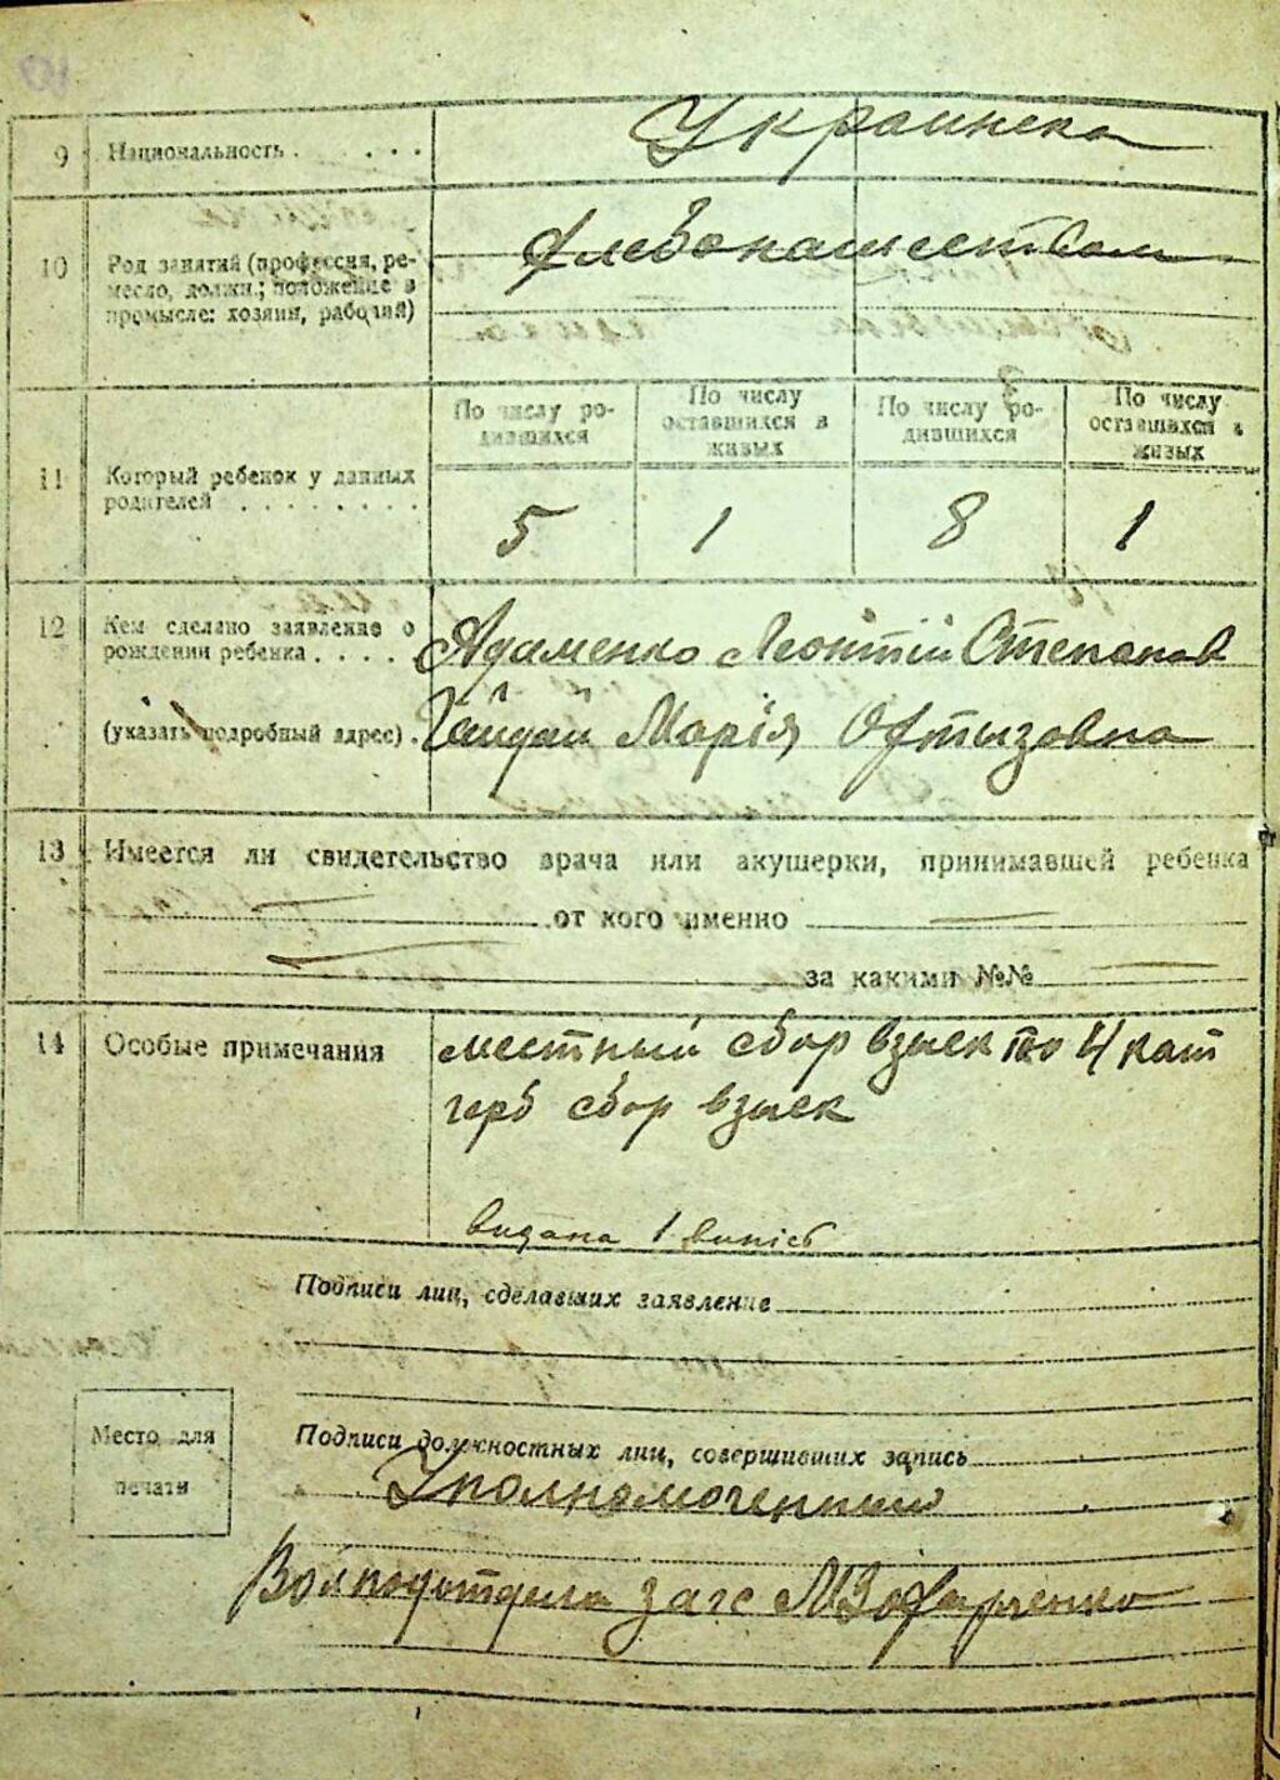 9 Национальность . . . . Украинска
10 Род занятий (профессия, ре-
месло, должн.; положение в
промысле: хозяин, рабочий)
Хлебопашеством
По числу ро-
дившихся
По числу
оставшихся в
живых
По числу ро-
дившихся
По числу
оставшихся в
живых
11 Который ребенок у данных
родителей . . . . . . . .
5 1 8 1
12 Кем сделано заявление о
рождении ребенка . . . . Адаменко Леонтій Степанов
(указать подробный адрес) . Гайдай Марія
13 Имеется ли свидетельство врача или акушерки, принимавшей ребенка
от кого именно
за какими №№
14 Особые примечания
местный сбор взыск по 4 кат
герб сбор взыск
видана 1 випіс
Подписи лиц, сделавших заявление
Место для
печати
Подписи должностных лиц, совершивших запись
Уполномоченный
загс